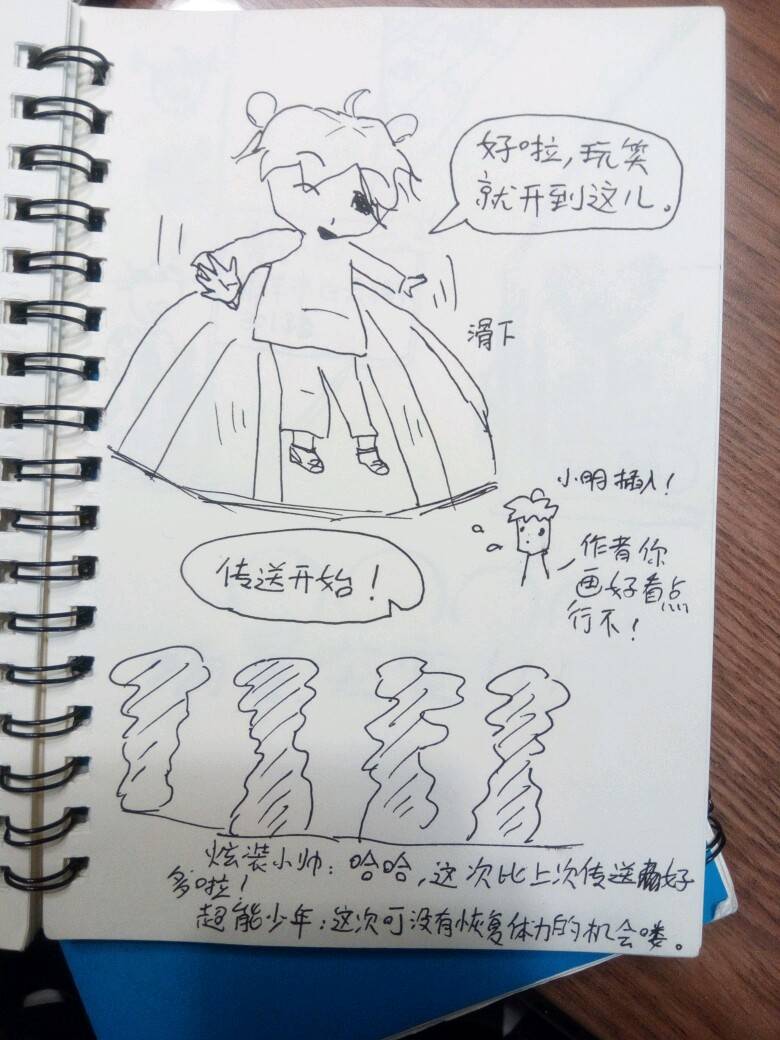 好啦,玩笑
就开到这儿。
滑下
小明插入!
作者你
画好看点
行不!
传送开始!
炫装小帅:哈哈,这次比上次传送好
多啦!
超能少年:这次可没有恢复体力的机会喽。